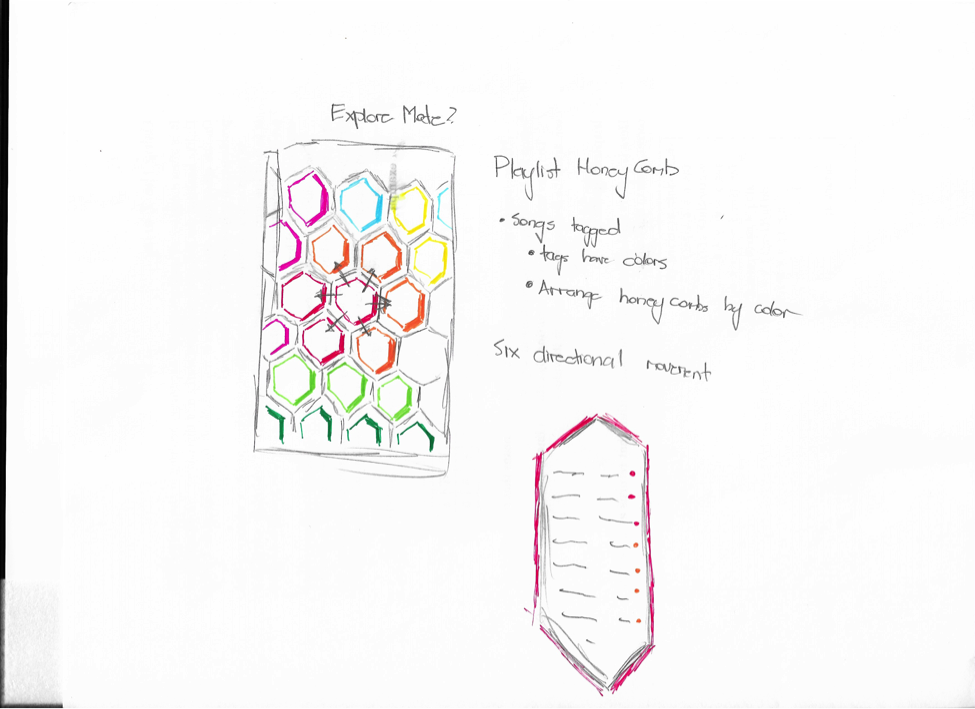 Explore Mode?
Playlist Honey Comb
• Songs tagged
• tags have colors
• Arrange honey combs by color
Six directional movement